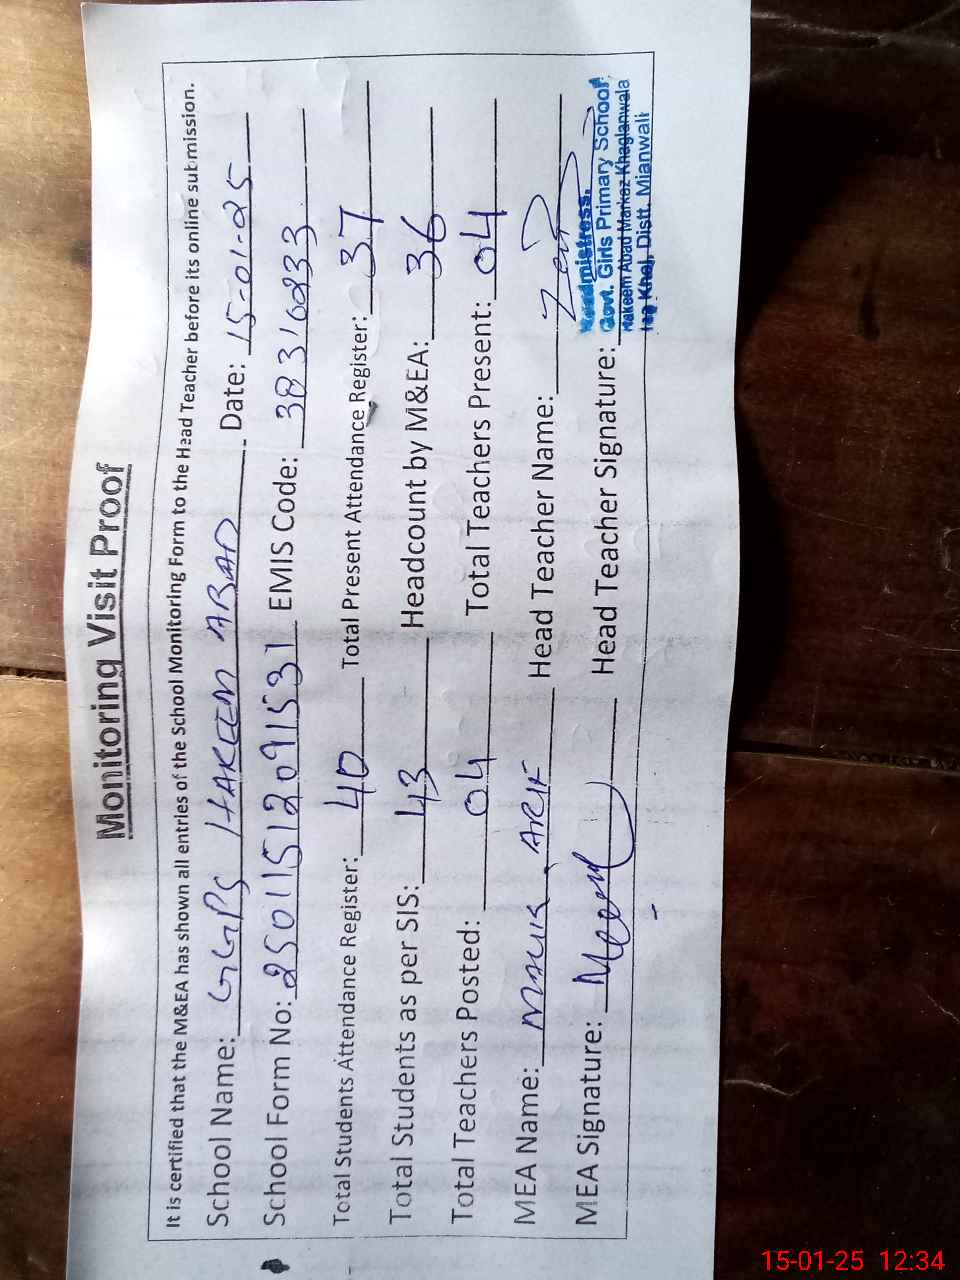 Monitoring Visit Proof
It is certified that the M&EA has shown all entries of the School Monitoring Form to the Head Teacher before its online submission.
School Name: GGPS HAKEEM ABAD Date: 15-01-25
School Form No: 25011512091531 EMIS Code: 38310233
Total Students Attendance Register: 40 Total Present Attendance Register: 37
Total Students as per SIS: 43 Headcount by M&EA: 36
Total Teachers Posted: 04 Total Teachers Present: 04
MEA Name: MALIK ARIF Head Teacher Name:
MEA Signature: Head Teacher Signature:
Headmistress,
Govt. Girls Primary School
Hakeem Abad Markaz Khaglanwala
Khel, Distt. Mianwali
15-01-25 12:34